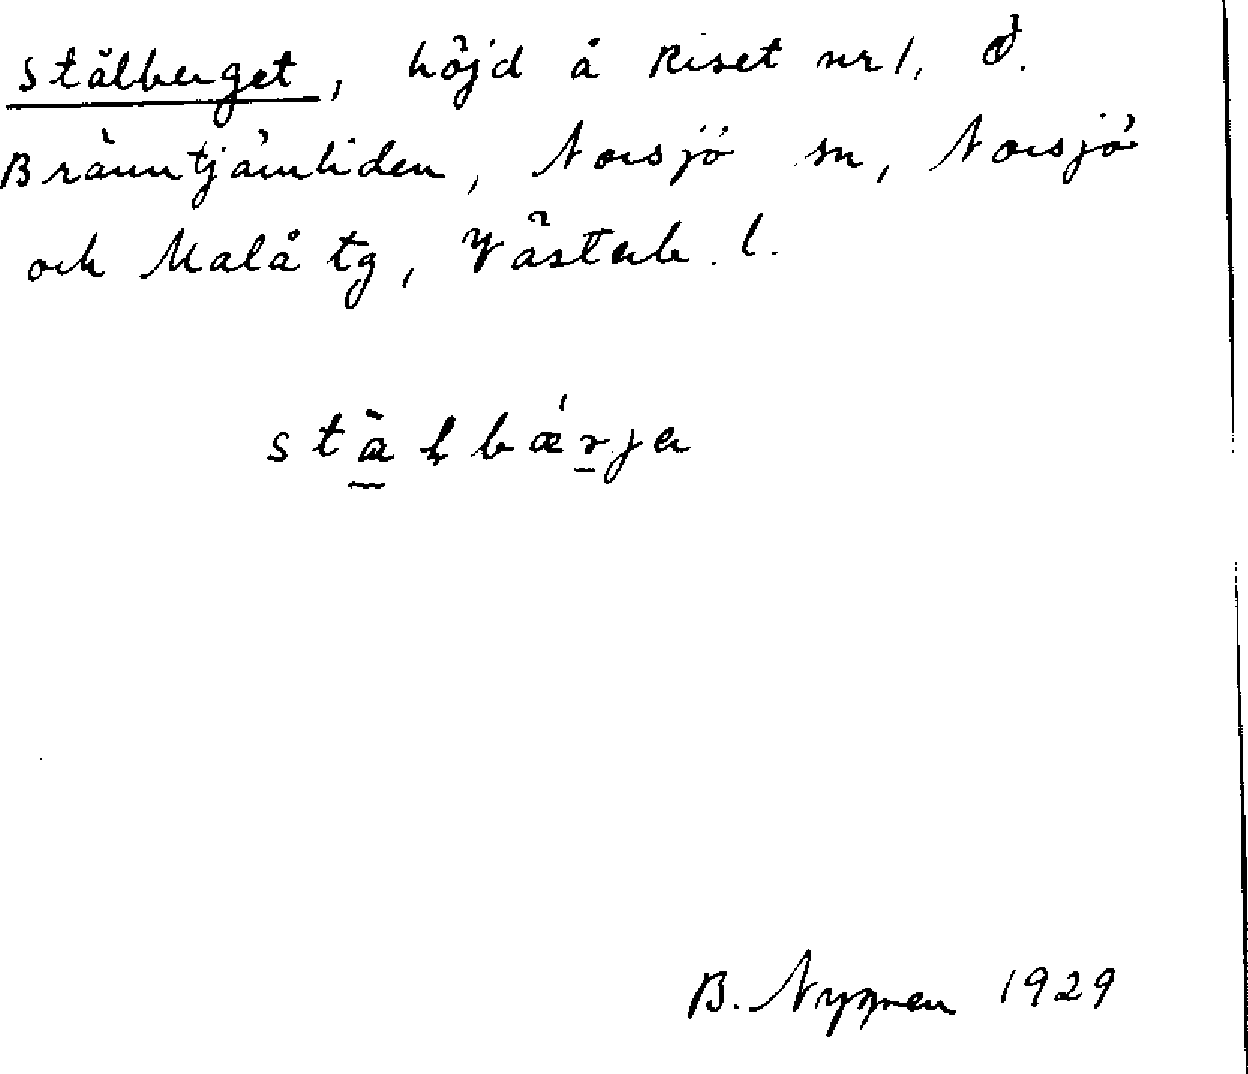 Stålberget, höjd å Riset nr 1, Ö.
Bränntjärnliden, Norsjö sn, Norsjö
och Malå tg, Västerb. l.
stàlbǽrja
B. Nygren 1929